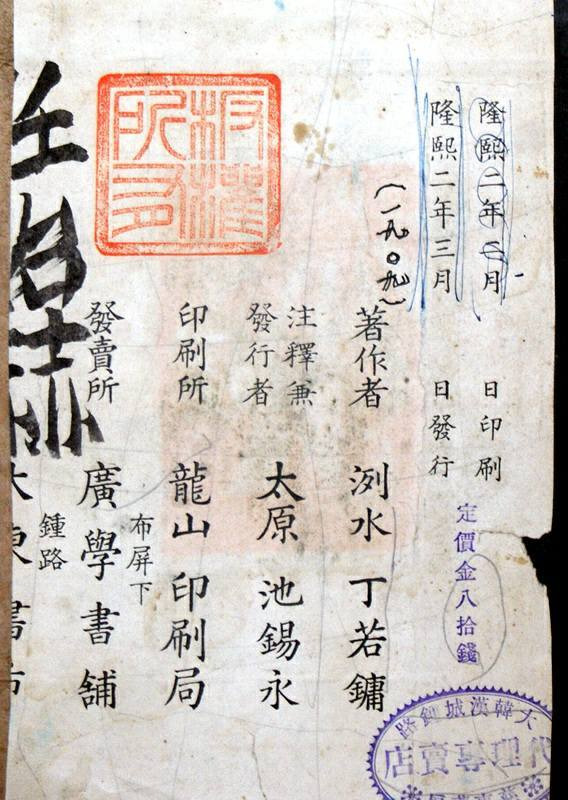 隆熙二年二月 日印刷
隆熙二年三月 日發行
定價金八拾錢
(一九〇九)
著作者 洌水 丁若鏞
注釋兼
發行者 太原 池錫永
印刷所 龍山印刷局
布屏下
發賣所 廣學書舖
鍾路
大東書市
版權
所有
大韓漢城鍾路
代理專賣店